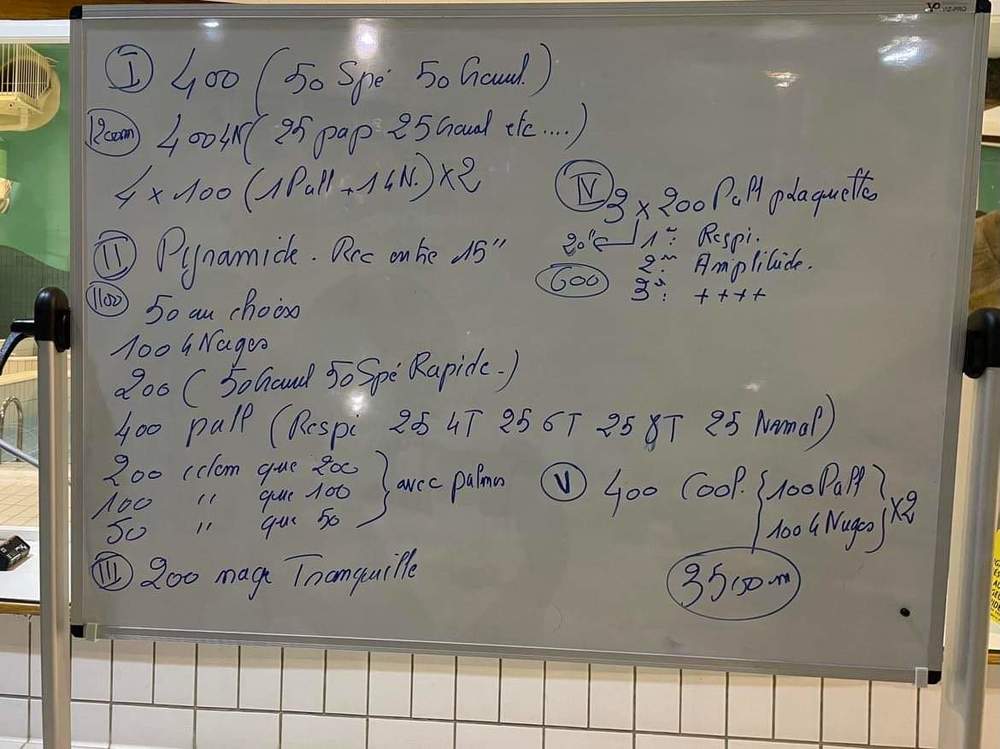 I 400 (50 Spé 50 Crawl.)
1200m 400 4N (25 pap 25 Crawl etc....)
4 x 100 (1 Pull + 1 4N.) x2
II Pyramide. Rec entre 15"
1100
50 au choix
100 4 Nages
200 (50 Crawl 50 Spé Rapide.)
400 pull (Respi 25 4T 25 6T 25 8T 25 Normal)
200 idem que 200
100 " que 100
50 " que 50
avec palmes
III 200 nage Tranquille
IV 3 x 200 Pull plaquettes
20"R 1er: Respi.
600 2em: Amplitude.
3e: ++++
V 400 Cool. {100 Pull
100 4 Nages} x2
3500m
VIZ-PRO